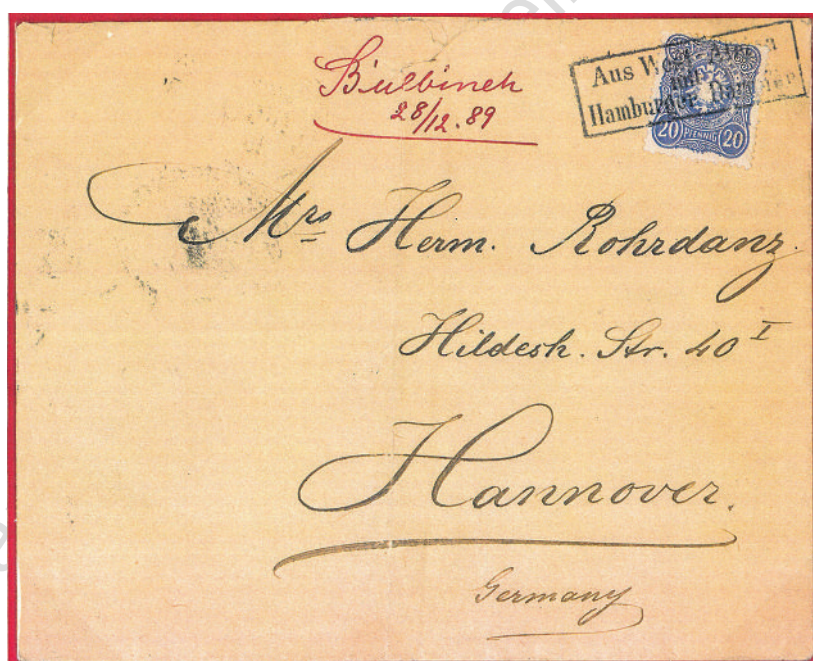 28/12.89
Aus West-Afrika
mit
Hamburger Dampfer
20 PFENNIG 20
Mrs Herm. Rohrdanz.
Hildesh. Str. 40 I
Hannover.
Germany